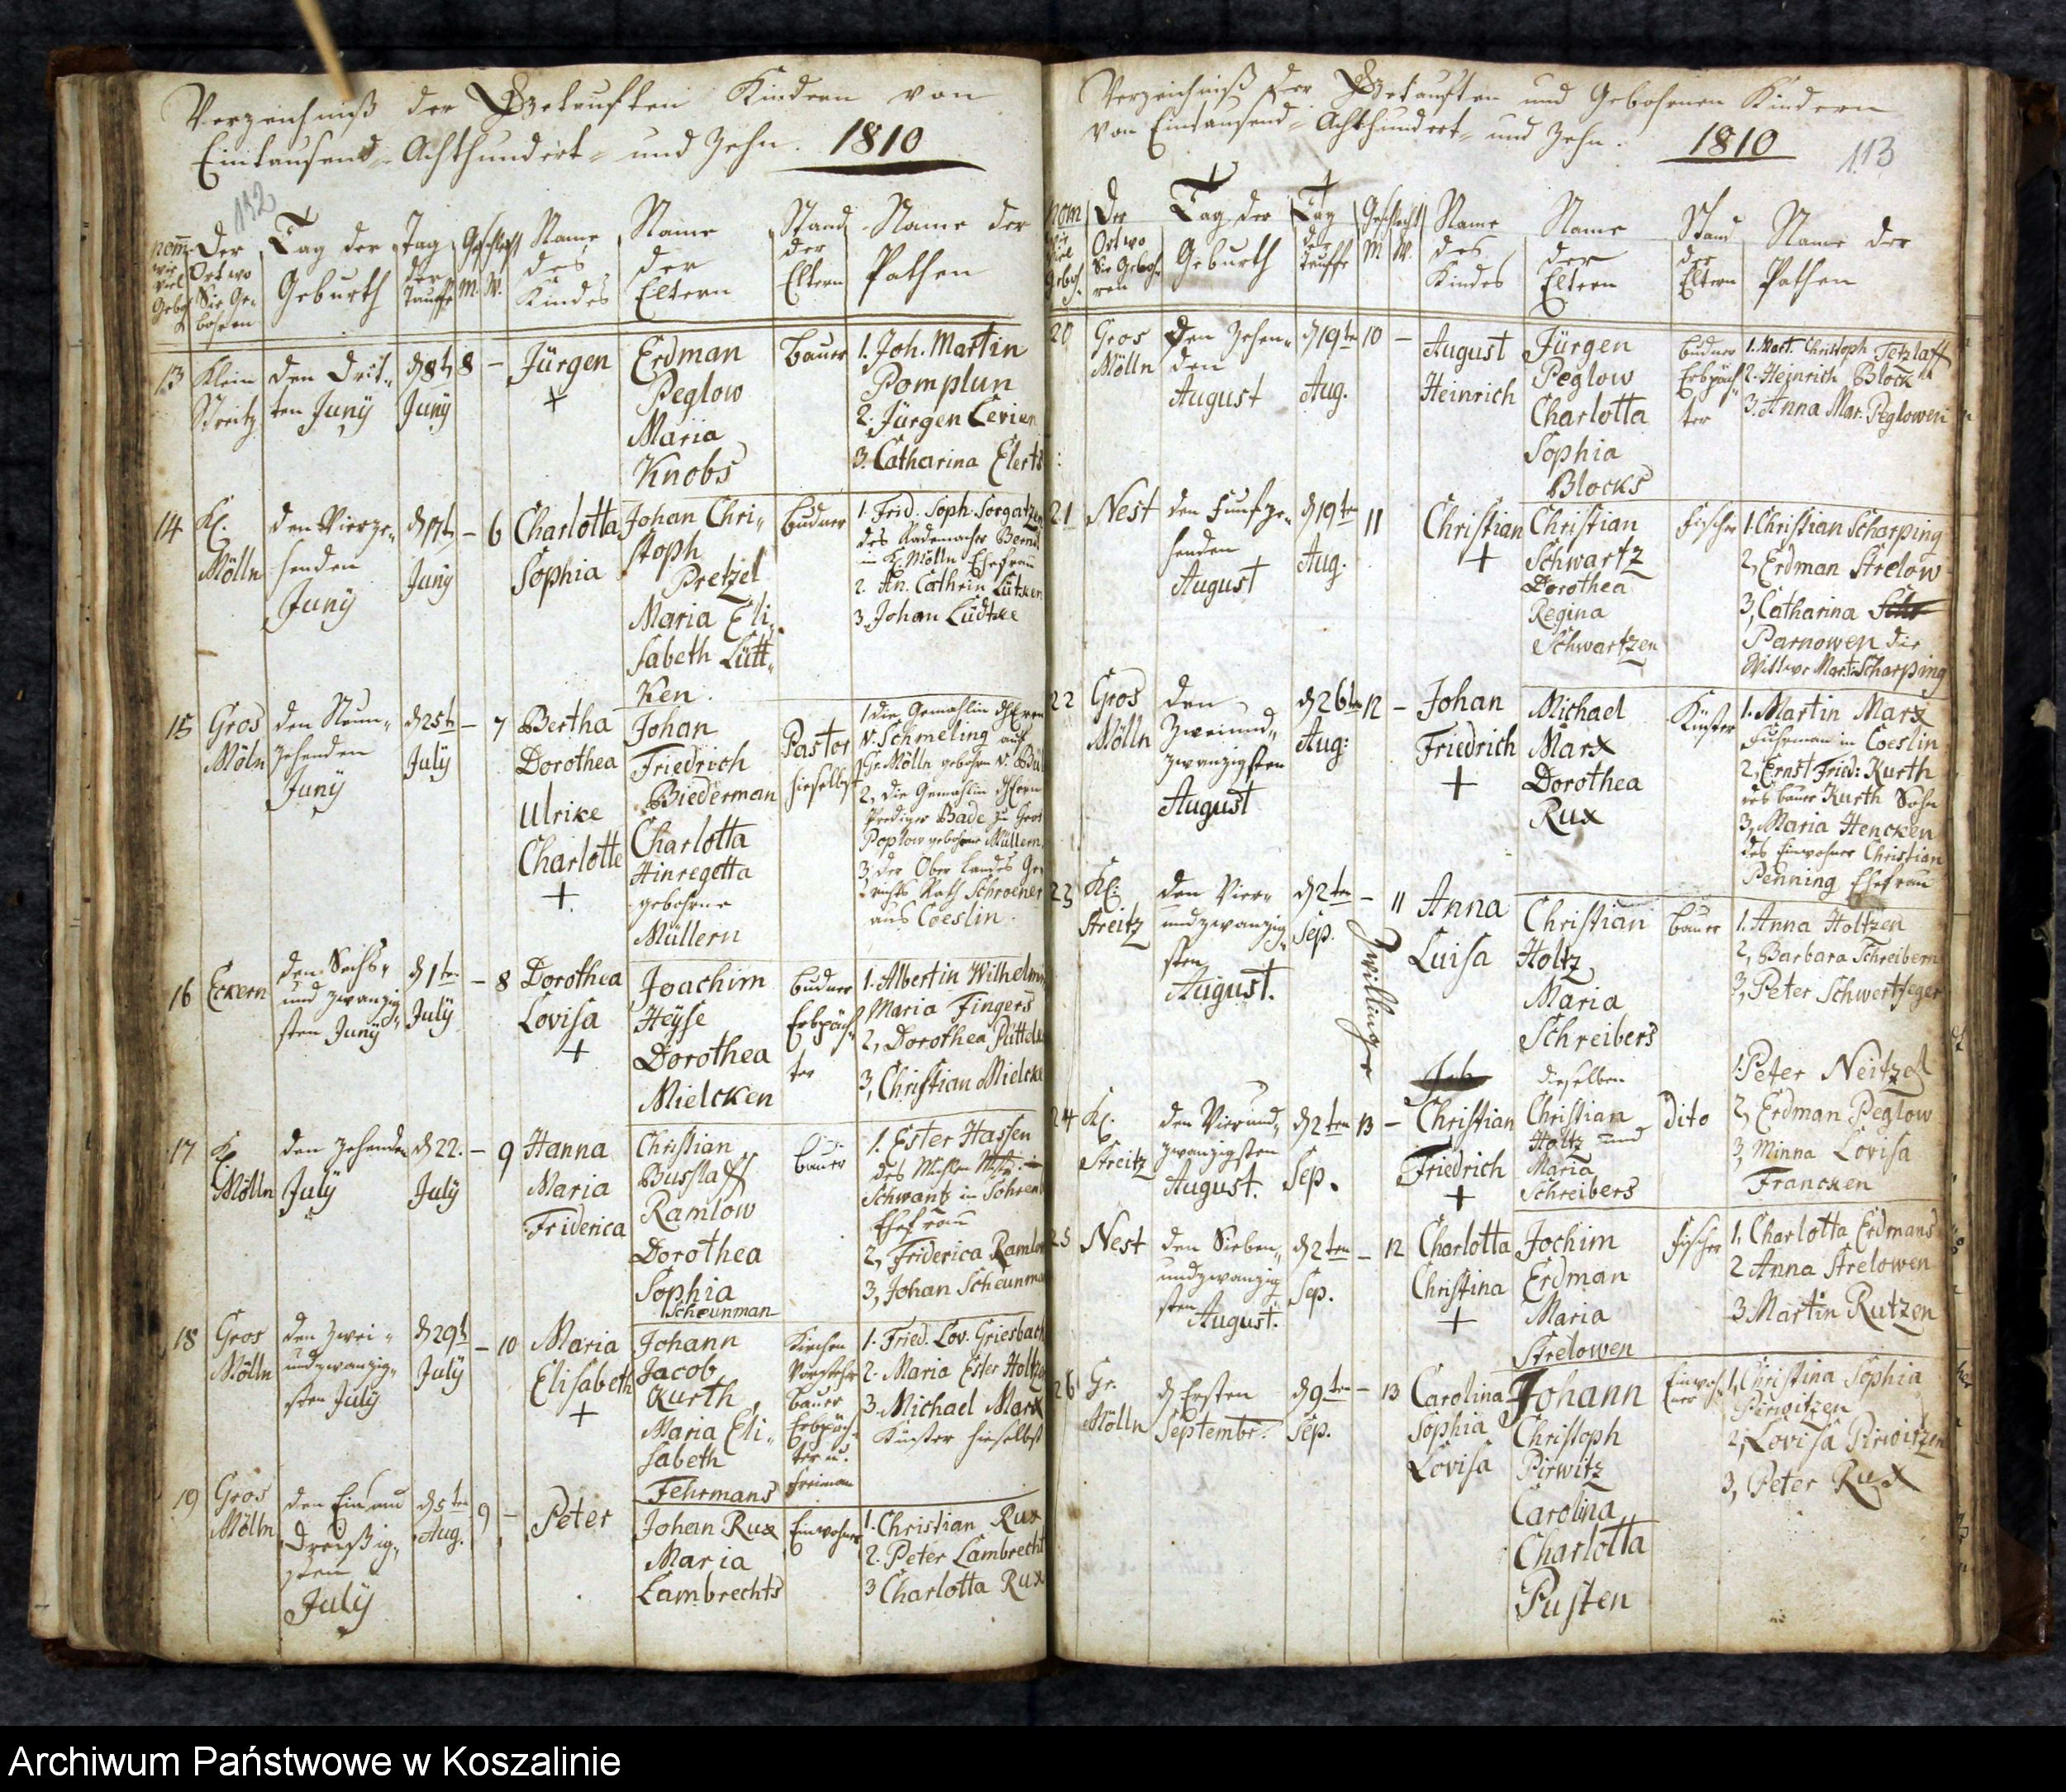 Verzeichniß der Getauften Kindern von
Eintausend- Achthundert- und Zehn. 1810
112
nom: wie viel Geboh.
Der Ort wo Sie Ge-bohren
Tag der Geburth
Tag der Tauffe
Geschlecht M. W.
Name des Kindes
Name der Eltern
Stand der Eltern
Name der Pathen
13 Klein Streitz
den Drit-
ten Juny
d 8t Juny
8 -
Jürgen
+
Erdman
Peglow
Maria
Knobs
Bauer
1. Joh. Martin
Pomplun
2. Jürgen Levien
3. Catharina Elerts
14 Kl. Mölln
den Vierze-
henden
Juny
d 17t Juny
- 6
Charlotta
Sophia
Johan Chri-
stoph
Pretzel
Maria Eli-
sabeth Lütt-
Ken.
Büdner
1. Frid. Soph. Sorgatzen
des Rademacher
in K. Mölln Ehefrau
2. An. Cathrin Lütken
3. Johan Lüdtke
15 Gros Möln
den Neun-
zehenden
Juny
d 25t July
- 7
Bertha
Dorothea
Ulrike
Charlotte
+
Johan
Friedrich
Biederman
Charlotta
Hinregetta
gebohrne
Müllern
Pastor
hieselbst
1 die Gemahlin d Herrn
v. Schmeling auf
Gr. Mölln gebohrn v.
2, die Gemahlin d Herrn
Prediger Bade zu Gros
Poplow gebohrne Müllern
3, der Ober Landes Ge-
richts Rath Schroener
aus Coeslin.
16 Eckern
den Sechs-
und zwanzig-
sten Juny
d 1ten July
- 8
Dorothea
Lovisa
+
Joachim
Heyse
Dorothea
Mielcken
Büdner
Erbpäch-
ter
1. Albertin Wilhelmin
Maria Fingers
2, Dorothea
3, Christian Mielcke
17 K. Mölln
den Zehenden
July
d 22. July
- 9
Hanna
Maria
Friderica
Christian
Busslaff
Ramlow
Dorothea
Sophia
Scheunman
Bauer
1. Ester Hassen
des
Schwantz in Sohren
Ehefrau
2, Friderica Ramlow
3, Johan Scheunman
18 Gros Mölln
den Zwei-
undzwanzig-
sten July
d 29t July
- 10
Maria
Elisabeth
+
Johann
Jacob
Kurth,
Maria Eli-
sabeth
Fehrmans
Kirchen
Vorsteher
Bauer
Erbpäch-
ter u.
Freiman
1. Fried. Lov. Griesbach
2. Maria Ester Holtz
3. Michael Marx
Küster hieselbst
19 Gros Mölln
den Ein und
Dreißig-
sten
July
d 5ten Aug.
9 -
Peter
Johan Rux
Maria
Lambrechts
Einwohner
1. Christian Rux
2. Peter Lambrecht
3 Charlotta Rux
Verzeichniß der Getauften und Gebohrnen Kindern
von Eintausend- Achthundert- und Zehn. 1810
113
nom wie viel Geboh.
Der Ort wo Sie Geboh-ren
Tag der Geburth
Tag der Tauffe
Geschlecht M W.
Name des Kindes
Name der Eltern
Stand der Eltern
Name der Pathen
20 Gros Mölln
den Zehen-
den
August
d 19ten Aug.
10 -
August
Heinrich
Jürgen
Peglow
Charlotta
Sophia
Blocks
Büdner
Erbpäch-
ter
1. Mart. Christoph Tetzlaff
2. Heinrich Block
3. Anna Mar. Peglowen
21 Nest
den Funfze-
henden
August
d 19ten Aug.
11
Christian
+
Christian
Schwartz
Dorothea
Regina
Schwartzen
Fischer
1. Christian Scharping
2, Erdman Strelow
3, Catharina
Parnowen die
Wittwe Mart. Scharping
22 Gros Mölln
den
Zweiund-
zwanzigsten
August
d 26ten Aug:
12 -
Johan
Friedrich
+
Michael
Marx
Dorothea
Rux
Küster
1. Martin Marx
Fuhrman in Coeslin
2, Ernst Fried: Kurth
des Bauer Kurth Sohn
3, Maria Hencken
des Einwohner Christian
Penning Ehefrau
23 Kl: Streitz
den Vier-
undzwanzig-
sten
August.
d 2ten Sep.
- 11
Zwillinge
Anna
Luisa
Christian
Holtz
Maria
Schreibers
Bauer
1. Anna Holtzen
2, Barbara Schreibern
3, Peter Schwertfeger
24 Kl. Streitz
den Vierund-
zwanzigsten
August.
d 2ten Sep.
13 -
Joh
Christian
Friedrich
+
dieselben
Christian
Holtz und
Maria
Schreibers
Dito
1. Peter Neitzel
2, Erdman Peglow
3, Minna Lovisa
Francken
25 Nest
den Sieben-
undzwanzig
sten August.
d 2ten Sep.
- 12
Charlotta
Christina
+
Jochim
Erdman
Maria
Strelowen
Fischer
1, Charlotta Erdmans
2 Anna Strelowen
3 Martin Rutzen
26 Gr. Mölln
d Ersten
Septembr.
d 9ten Sep.
- 13
Carolina
Sophia
Lovisa
Johann
Christoph
Pirwitz
Carolina
Charlotta
Pusten
Einwoh-
ner
1, Christina Sophia
Pirwitzen
2, Lovisa Pirwitzen
3, Peter Rux
Archiwum Państwowe w Koszalinie